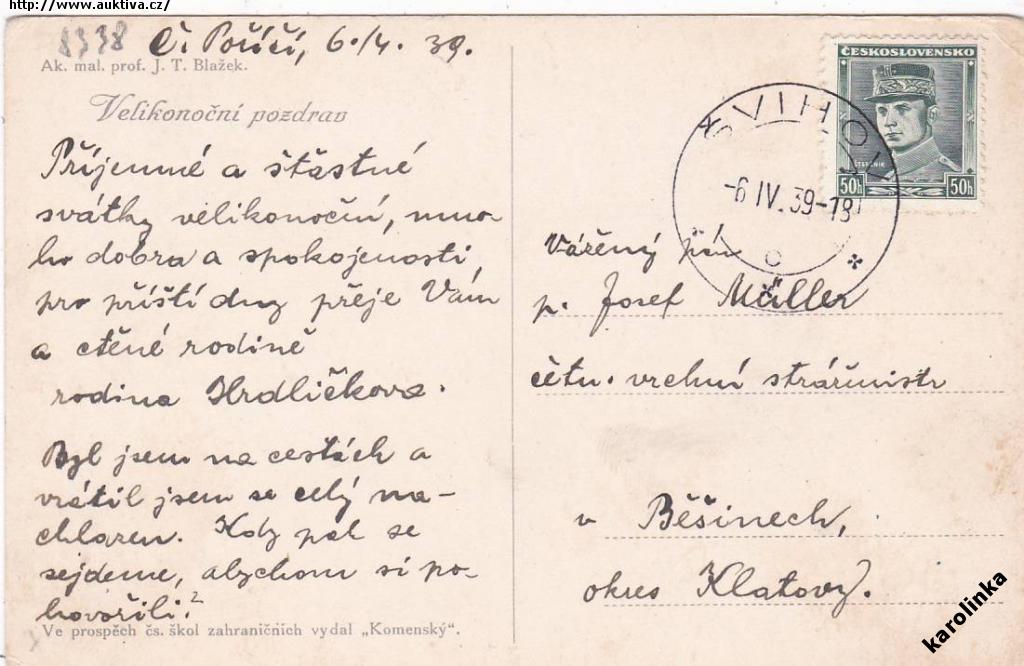 http://www.auktiva.cz/
8338
Č. Poříčí, 6./4. 39.
Ak. mal. prof. J. T. Blažek.
Velikonoční pozdrav
Příjemné a štastné
svátky velikonoční, mno-
ho dobra a spokojenosti
pro příští dny přeje Vám
a ctěné rodině
rodina Hrdličkova.
Byl jsem na cestách a
vrátil jsem se celý na-
chlazen. Kdy pak se
sejdeme, abychom si po-
hovořili?
Ve prospěch čs. škol zahraničních vydal „Komenský".
ČESKOSLOVENSKO
ŠTEFÁNIK
50h
50h
ŠVIHOV
-6 IV. 39-18
Vážený pán
p. Josef Müller
četn. vrchní strážmistr
v Běšinech,
okres Klatovy.
karolinka